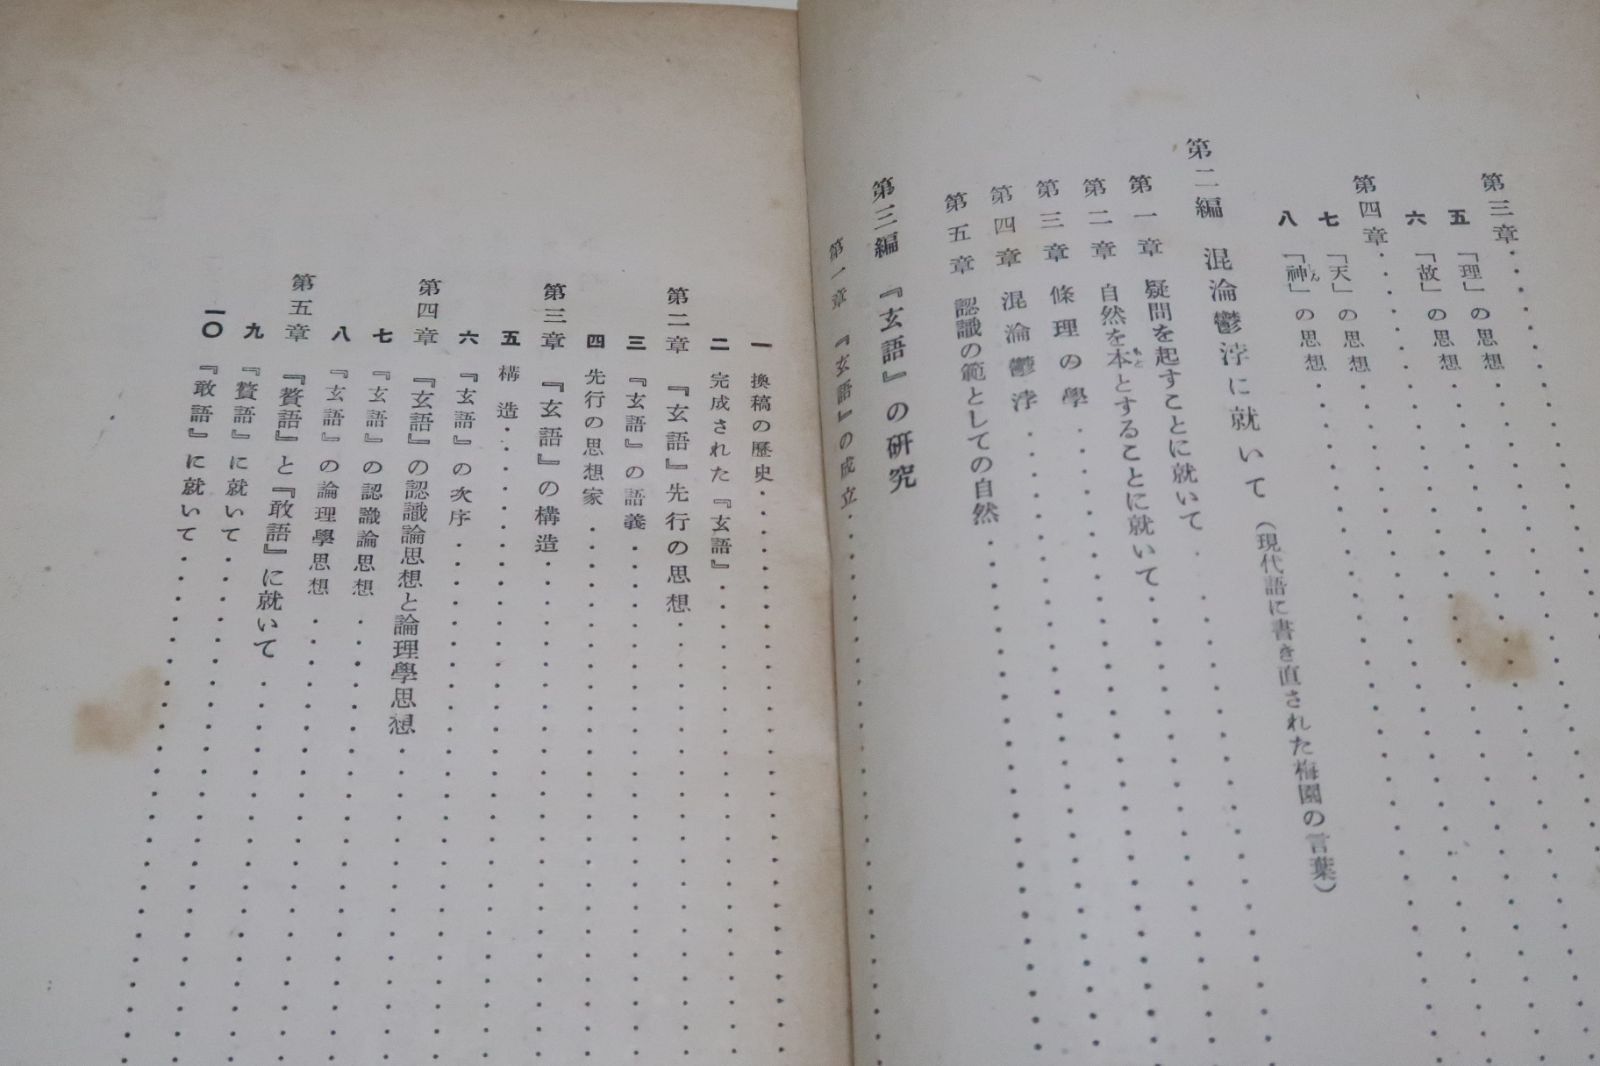 第三章
五 「理」の思想
六 「故」の思想
第四章
七 「天」の思想
八 「神」の思想
第二編 混淪鬱浡に就いて（現代語に書き直された梅園の言葉）
第一章 疑問を起すことに就いて
第二章 自然を本とすることに就いて
第三章 條理の學
第四章 混淪鬱浡
第五章 認識の範としての自然
第三編 『玄語』の研究
第一章 『玄語』の成立
一 換稿の歷史
二 完成された『玄語』
第二章 『玄語』先行の思想
三 『玄語』の語義
四 先行の思想家
第三章 『玄語』の構造
五 構造
六 『玄語』の次序
第四章 『玄語』の認識論思想と論理學思想
七 『玄語』の認識論思想
八 『玄語』の論理學思想
第五章 『贅語』と『敢語』に就いて
九 『贅語』に就いて
一〇 『敢語』に就いて